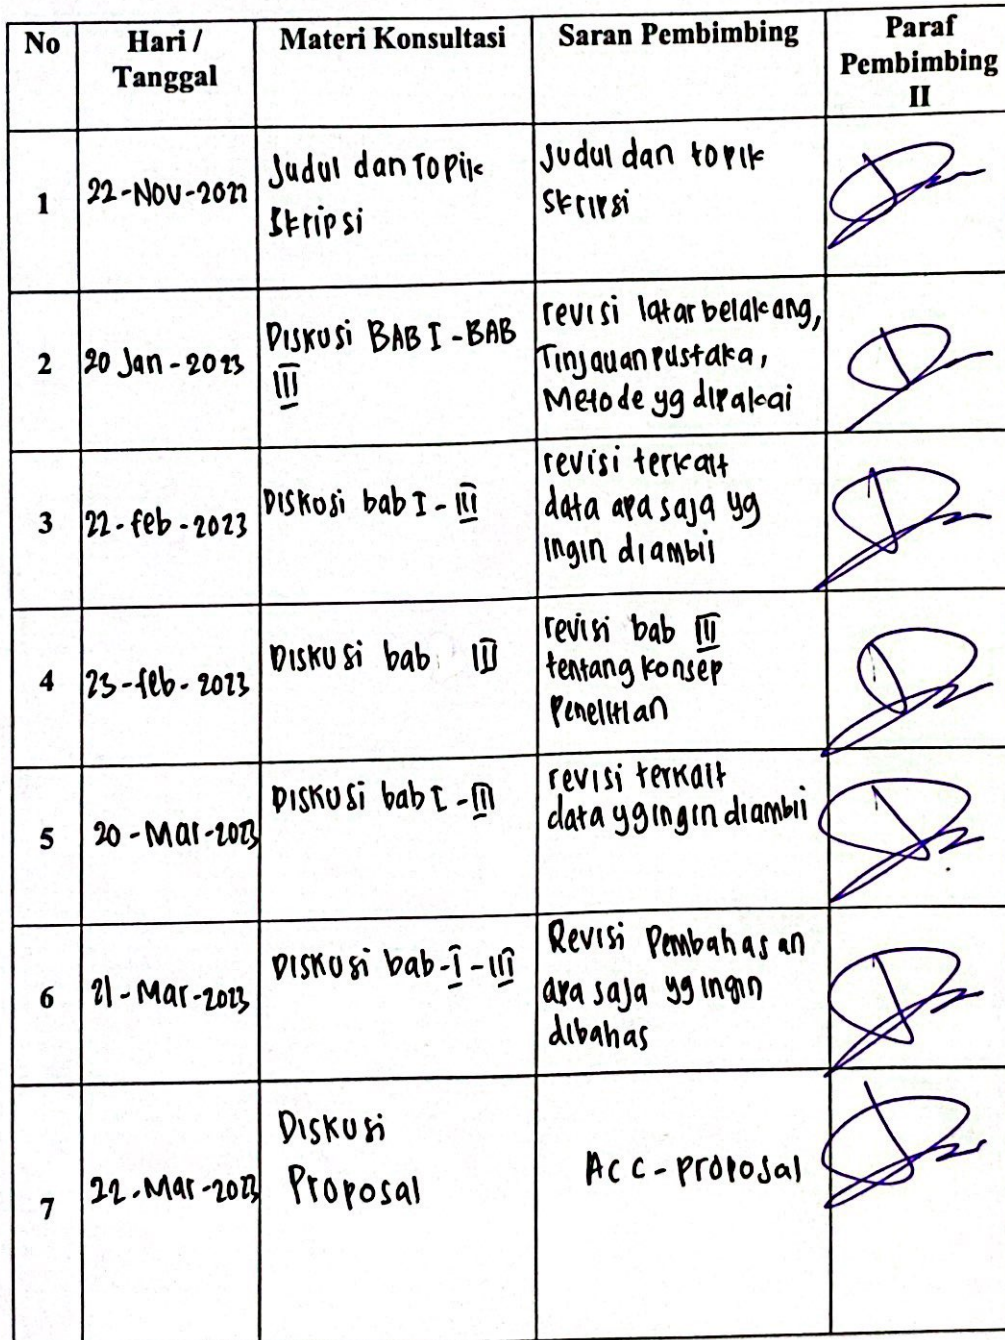 No Hari / Tanggal Materi Konsultasi Saran Pembimbing Paraf Pembimbing II
1 22-Nov-2022 Judul dan Topik Skripsi Judul dan topik skripsi
2 20 Jan-2023 Diskusi BAB I - BAB III revisi latar belakang, Tinjauan pustaka, Metode yg dipakai
3 22-feb-2023 Diskusi bab I - III revisi terkait data apa saja yg ingin diambil
4 23-feb-2023 Diskusi bab III revisi bab III tentang konsep Penelitian
5 20-Mar-2023 Diskusi bab I - III revisi terkait data yg ingin diambil
6 21-Mar-2023 Diskusi bab-I-III Revisi Pembahasan apa saja yg ingin dibahas
7 22-Mar-2023 Diskusi Proposal Acc-proposal